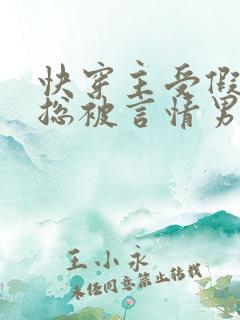 快穿主受假
总被言情男
王小永
未经同意禁止转载